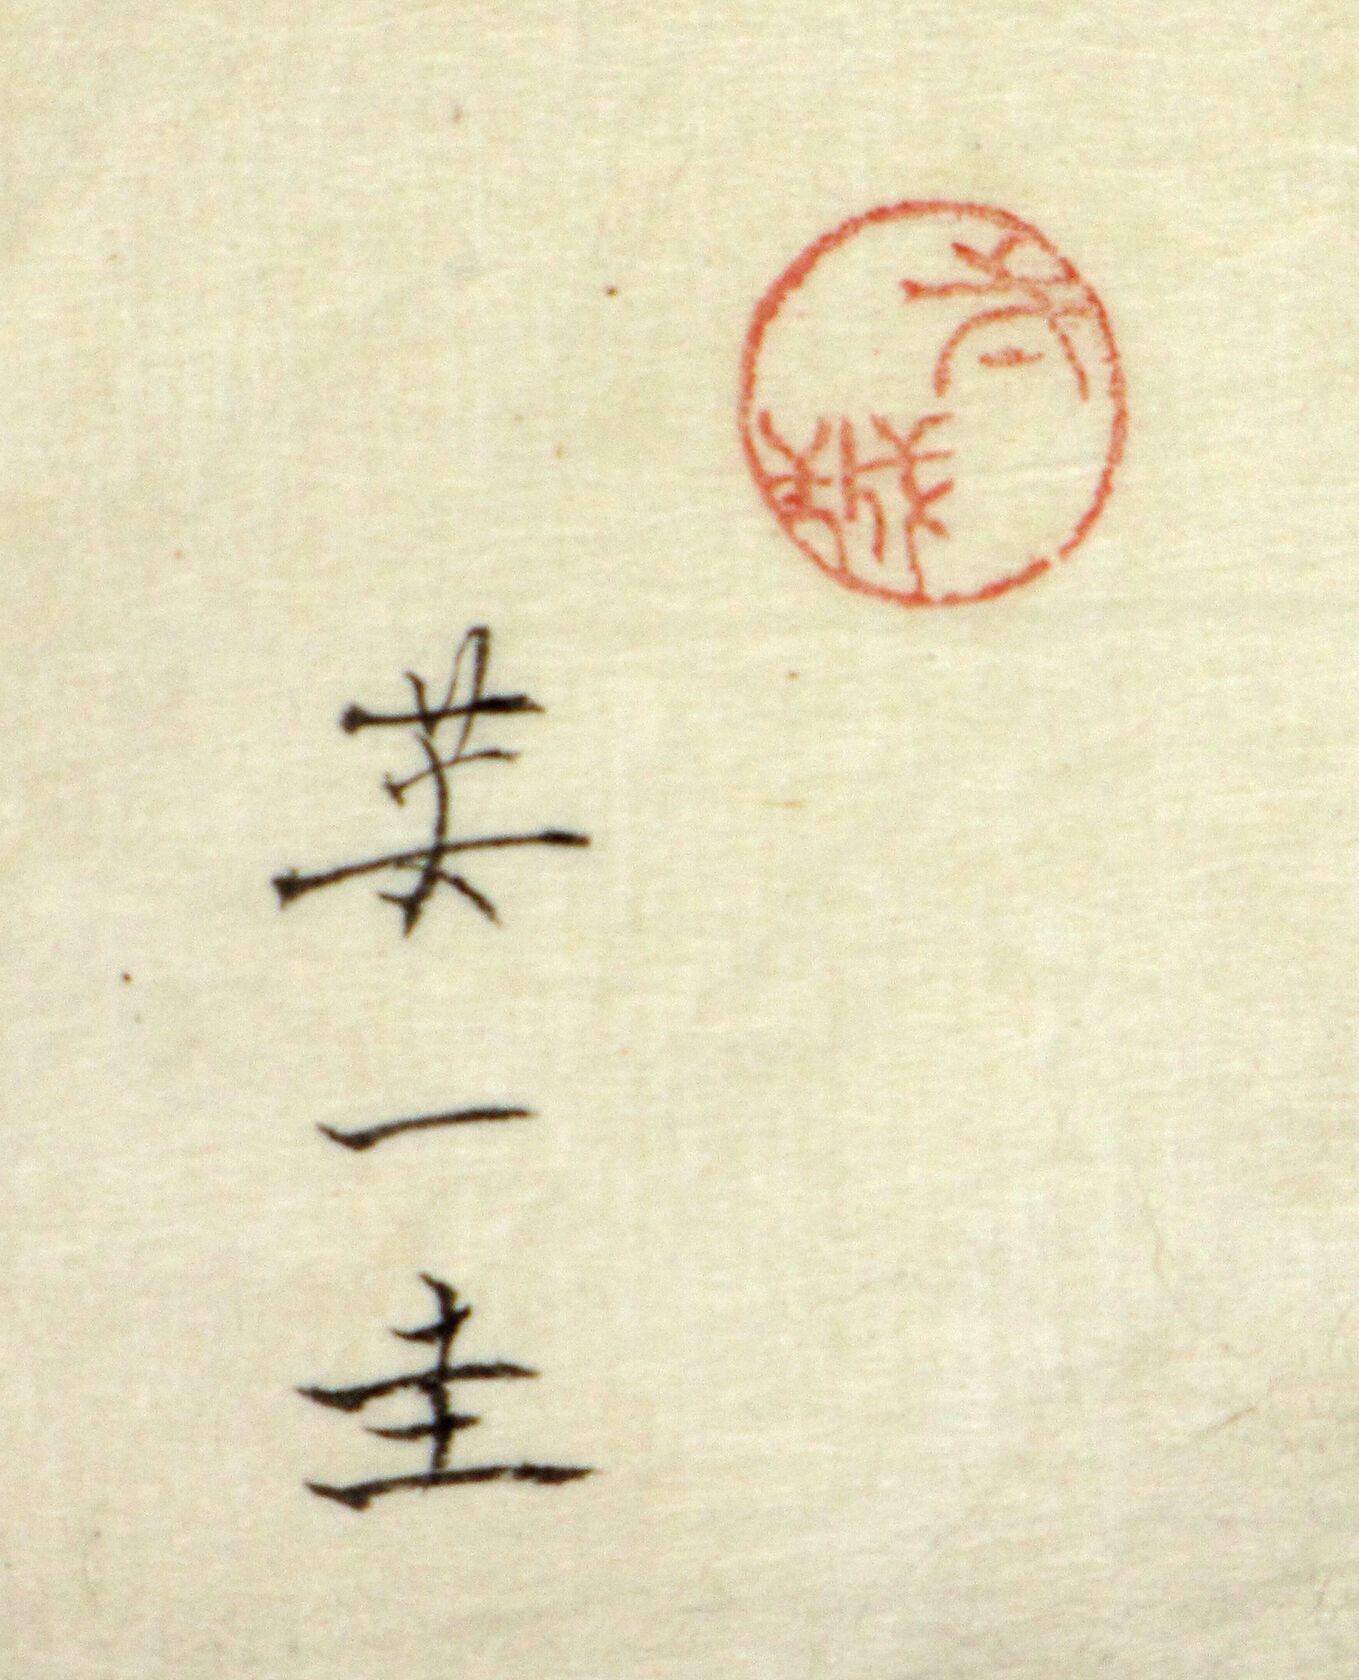 英一圭